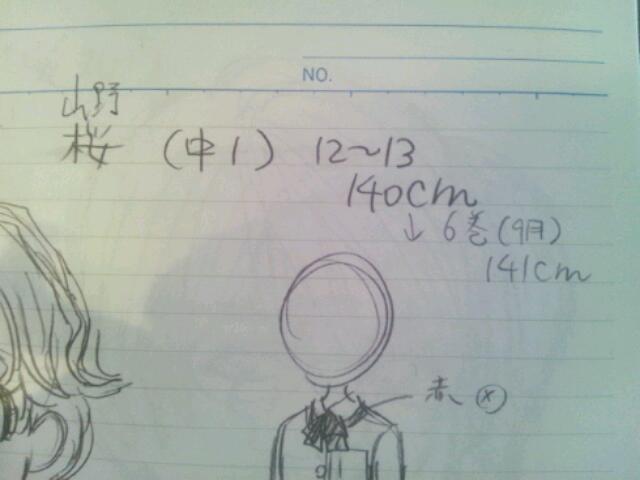 NO.
山野
桜 (中1) 12〜13
140cm
↓ 6巻(9月)
141cm
赤